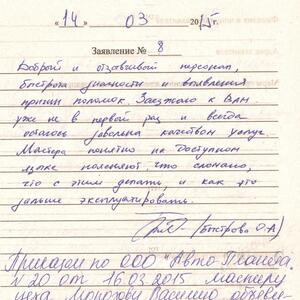 «14» 03 2015 г.
Заявление № 8
Добрый и отзывчивый персонал,
быстрота диагностики и выявления
причин поломок. Заезжаю к Вам
уже не в первой раз и всегда
осталась довольна качеством услуг.
Мастера понятно на доступном
языке поясняют, что сломано,
что с этим делать и как это
дальше эксплуатировать.
(Быстрова О.А)
Приказом по ООО "Авто-Планета"
№20 от 16.03.2015 мастеру
цеха Василию объявле